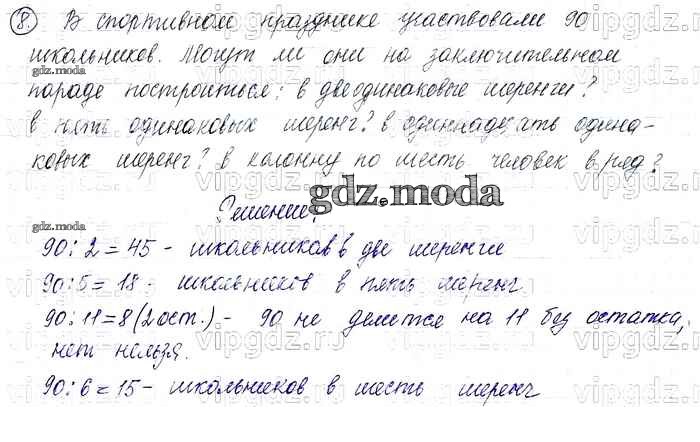 8. В спортивном празднике участвовали 90
школьников. Могут ли они на заключительном
gdz.moda
параде построиться: в две одинаковые шеренги?
в пять одинаковых шеренг? в одиннадцать одина-
ковых шеренг? в колонну по шесть человек в ряд?
gdz.moda
Решение:
gdz.moda
90:2=45 - школьников в две шеренги
90:5=18 - школьников в пять шеренг
90:11=8(2ост.) - 90 не делится на 11 без остатка,
gdz.moda
нет нельзя.
90:6=15 - школьников в шесть шеренг